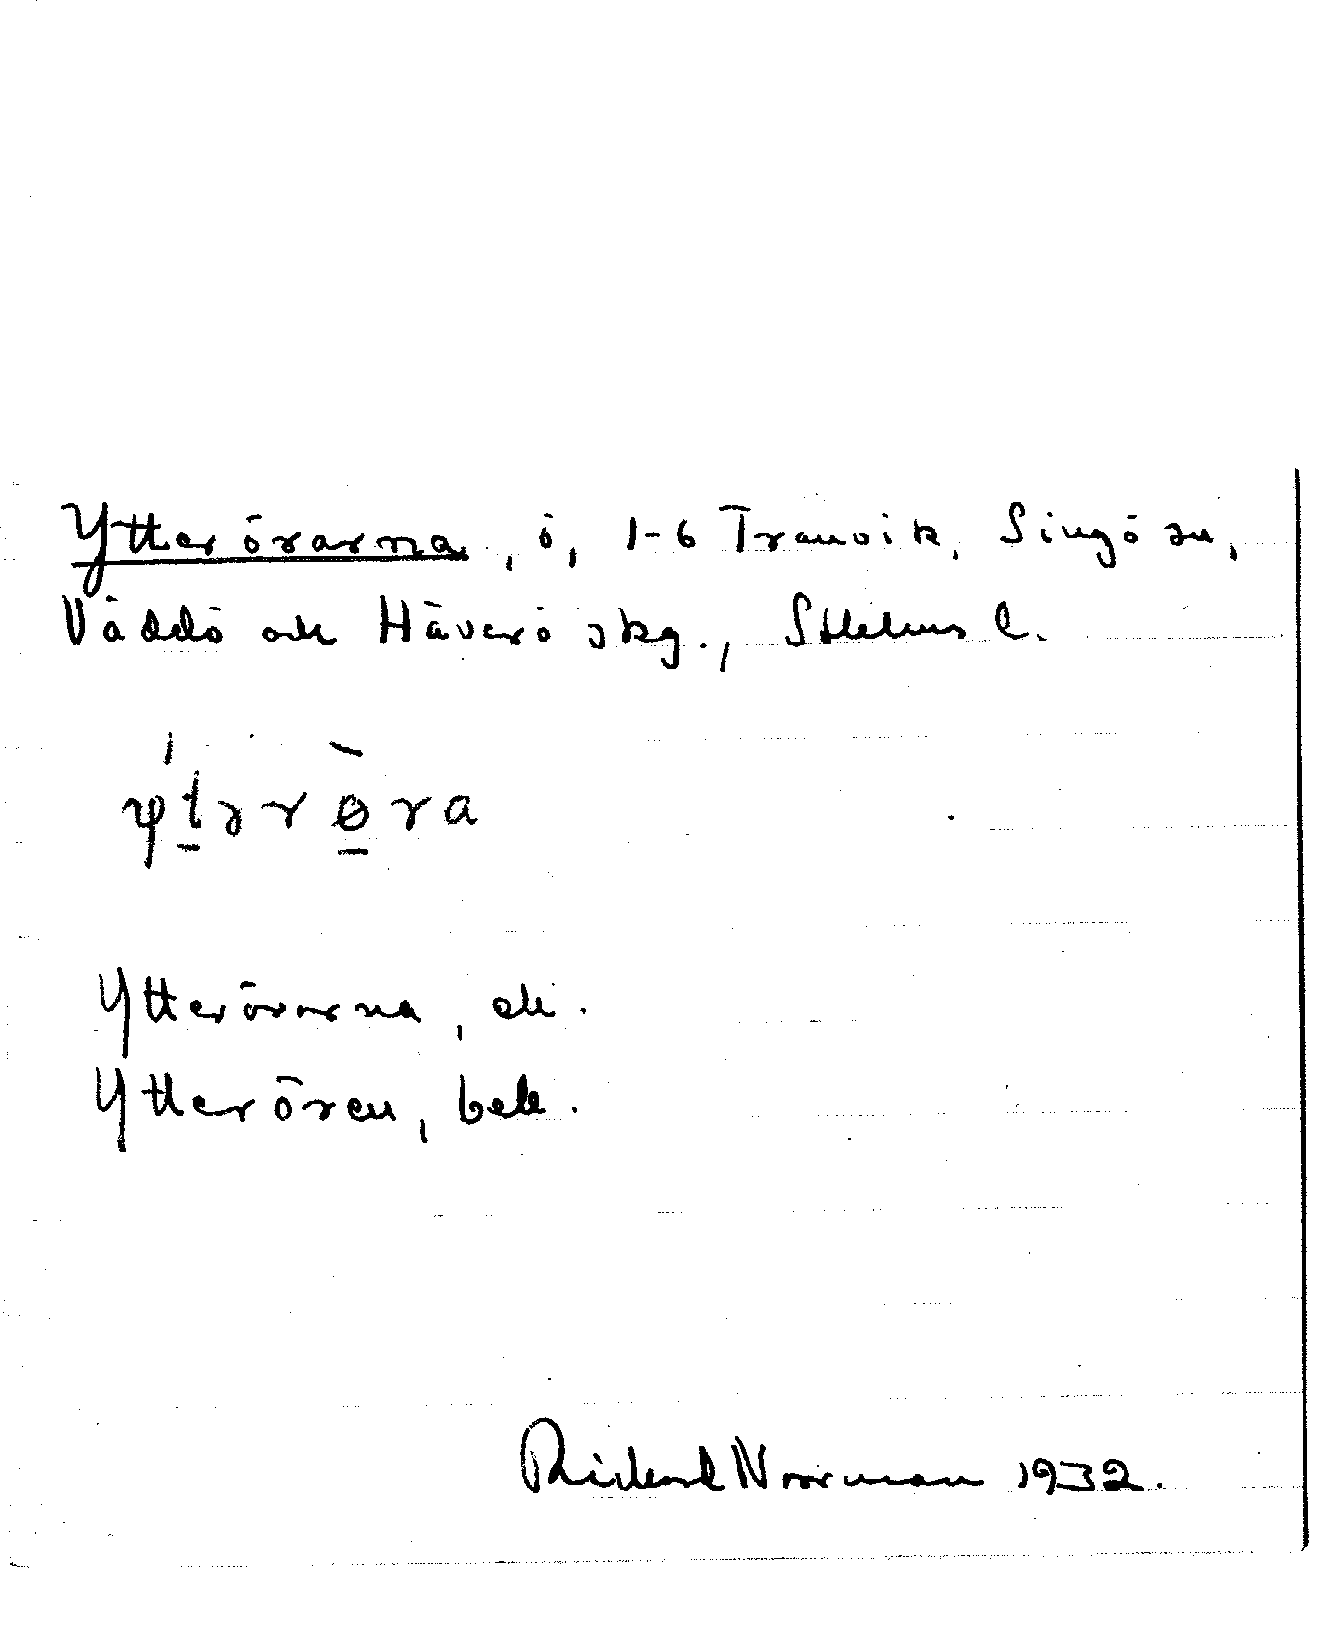 Ytterörarna, ö, 1-6 Tranvik, Singö sn,
Väddö och Häverö skg., Sthlms l.
ýt̲ərø̲̀ra
Ytterörarna, ek.
Ytterören, bek.
Rickard Norrman 1932.